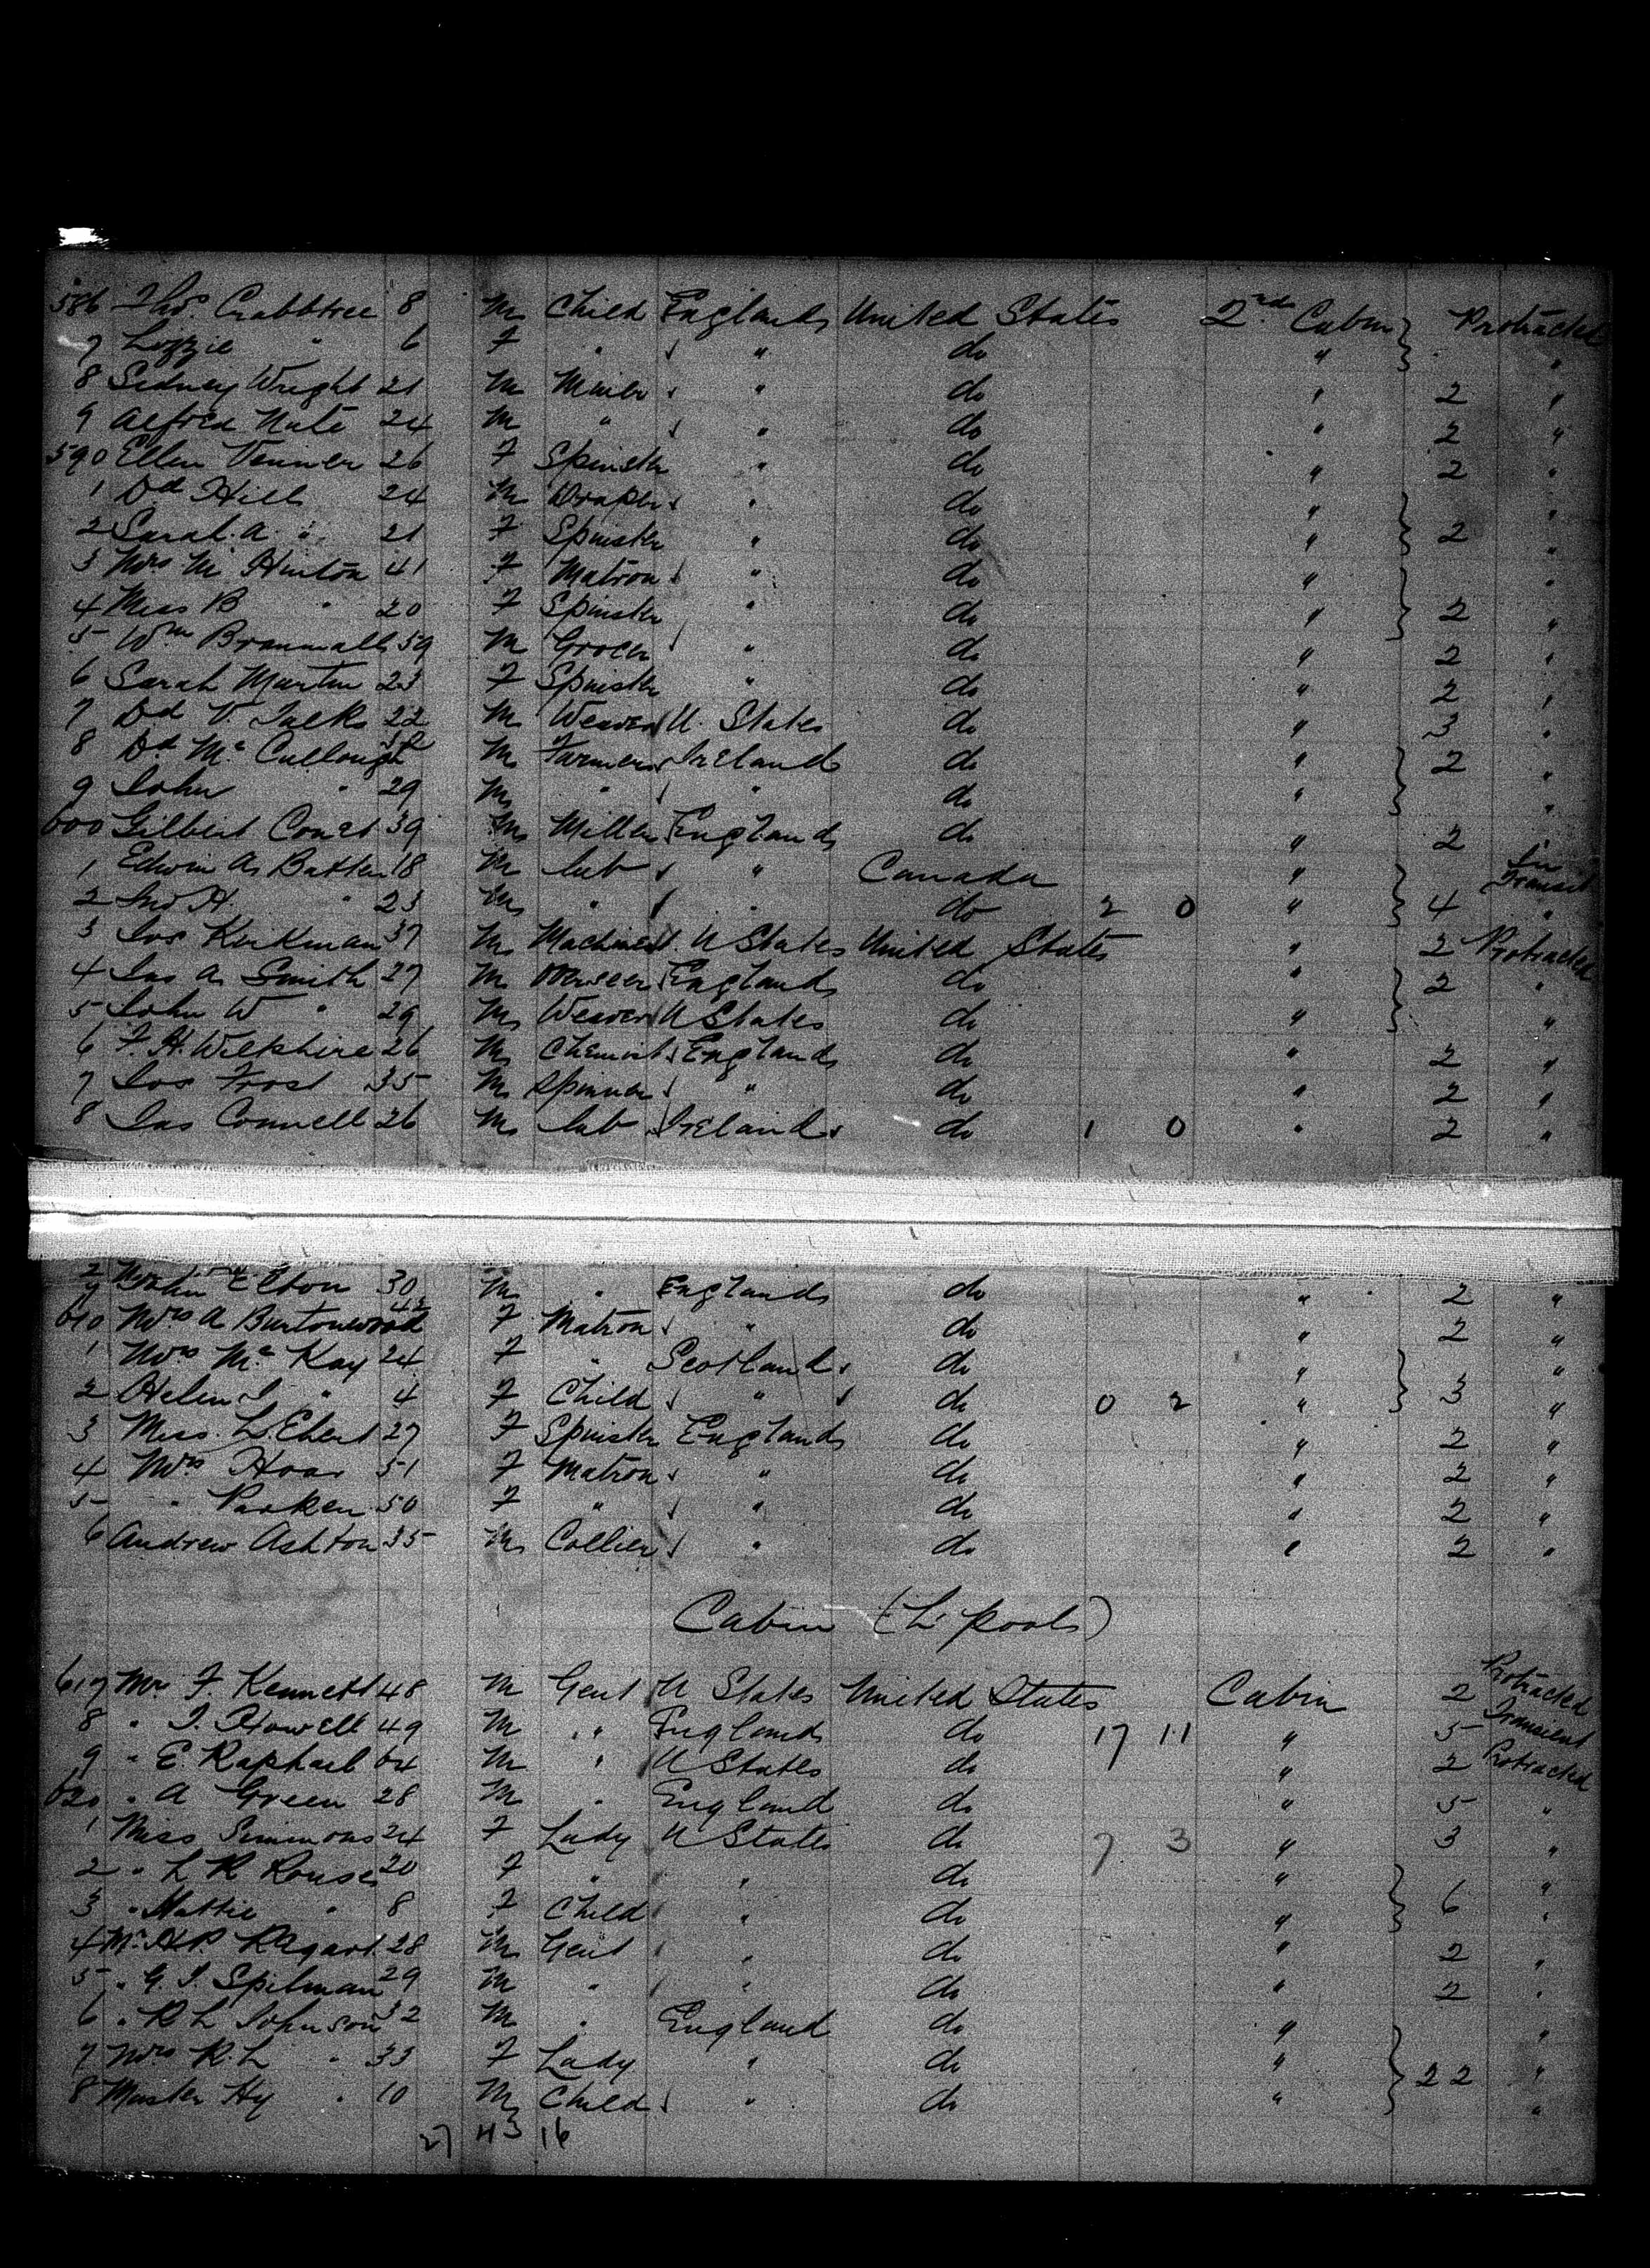 586 Thos. Crabbtree 8 M Child England United States 2nd Cabin } Protracted
7 Lizzie " 6 F " " do " } "
8 Sidney Wright 21 M Miner " do " 2 "
9 Alfred Nute 24 M " " do " 2 "
590 Ellen Venner 26 F Spinster " do " 2 "
1 Dd Hill 24 M Draper " do " "
2 Sarah A. " 21 F Spinster " do " } 2 "
3 Mrs M Hinton 41 F Matron " do " "
4 Miss B " 20 F Spinster " do " } 2 "
5 Wm Brammall 59 M Grocer " do " 2 "
6 Sarah Martin 23 F Spinster " do " 2 "
7 Dd V. 22 M Weaver U. States do " 3 "
8 Dd Mc Cullough M Farmer Ireland do " } 2 "
9 John " 29 M " " do " "
600 Gilbert 39 M Miller England do " 2 "
1 Edwin A Batten 18 M Lab " Canada " In Transit
2 Jno H. " 23 M " " do 2 0 " } 4 "
3 Jos Kirkman 37 M Machinest U States United States " 2 Protracted
4 Jas A Smith 27 M Overseer England do " } 2 "
5 John W " 29 M Weaver U States do " "
6 F. H. Wilkshire 26 M Chemist England do " 2 "
7 Jos Frost 35 M Spinner " do " 2 "
8 Jas Connell 26 M Lab Ireland do 1 0 " 2 "
9 John Elton 30 M " England do " 2 "
610 Mrs A Burtonwood 42 F Matron " do " 2 "
1 Mrs Mc Kay 24 F " Scotland do " "
2 Helen J " 4 F Child " do 0 2 " } 3 "
3 Miss L. Ebert 27 F Spinster England do " 2 "
4 Mrs Hoar 51 F Matron " do " 2 "
5 " Parker 50 F " " do " 2 "
6 Andrew Ashton 35 M Collier " do " 2 "
Cabin (L'pool)
617 Mr F. Kennett 48 M Gent U States United States Cabin 2 Protracted
8 " J. Howell 49 M " England do 17 11 " 5 Transient
9 " E. Raphael 64 M " U States do " 2 Protracted
620 " A Green 28 M " England do " 5 "
1 Miss Simmons 24 F Lady U States do 7 3 " 3 "
2 " L R Rouse 20 F " " do " "
3 " Hattie " 8 F Child " do " } 6 "
4 Mr 28 M Gent " do " 2 "
5 " G. J. Spilman 29 M " " do " 2 "
6 " R L Johnson 32 M " England do " "
7 Mrs R. L " 33 F Lady " do " } 22 "
8 Master Hy " 10 M Child " do " "
27 43 16